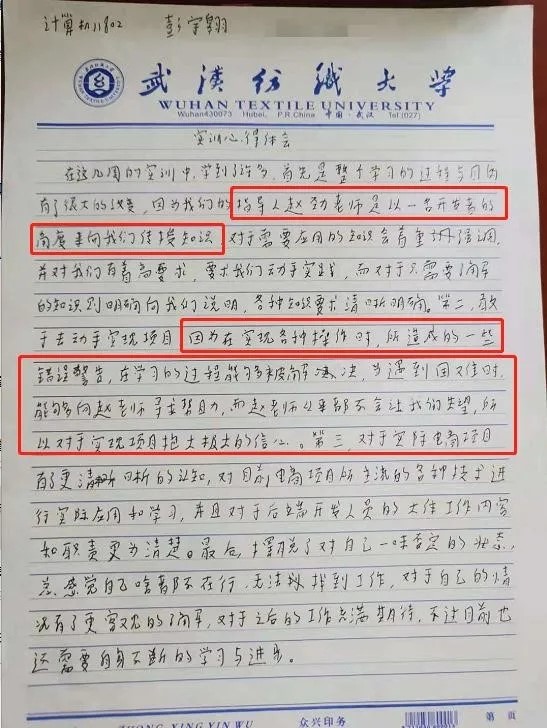 计算机11802 彭宇翱
武汉纺织大学
WUHAN TEXTILE UNIVERSITY
Wuhan430073 Hubei, P.R.China 中国·武汉 Tel(027)
实训心得体会
在这几周的实训中,学到了许多,首先是整个学习的过程与目的
有了很大的改变,因为我们的指导人赵劲老师是以一名开发者的
高度来向我们传授知识,对于需要应用的知识会着重强调,
并对我们有着高要求,要求我们动手实践,而对于只需要了解
的知识则明确向我们说明,各种知识要求清晰明确。第二,敢
于去动手实现项目,因为在实现各种操作时,所造成的一些
错误警告,在学习的过程能够被解决,当遇到困难时,
能够向赵老师寻求帮助,而赵老师从来都不会让我们失望,所
以对于实现项目抱大极大的信心。第三,对于实际电商项目
有了更清晰的认知,对目前电商项目所主流的各种技术进
行实际应用和学习,并且对于后端开发人员的大件工作内容
和职责更为清楚。最后,摆脱了对自己一味否定的状态,
总感觉自己啥都不在行,无法找到工作,对于自己的情
况有了更客观的了解,对于之后的工作充满期待,不过目前也
还需要自身不断的学习与进步。
ZHONG XING YIN WU 众兴印务 第 页